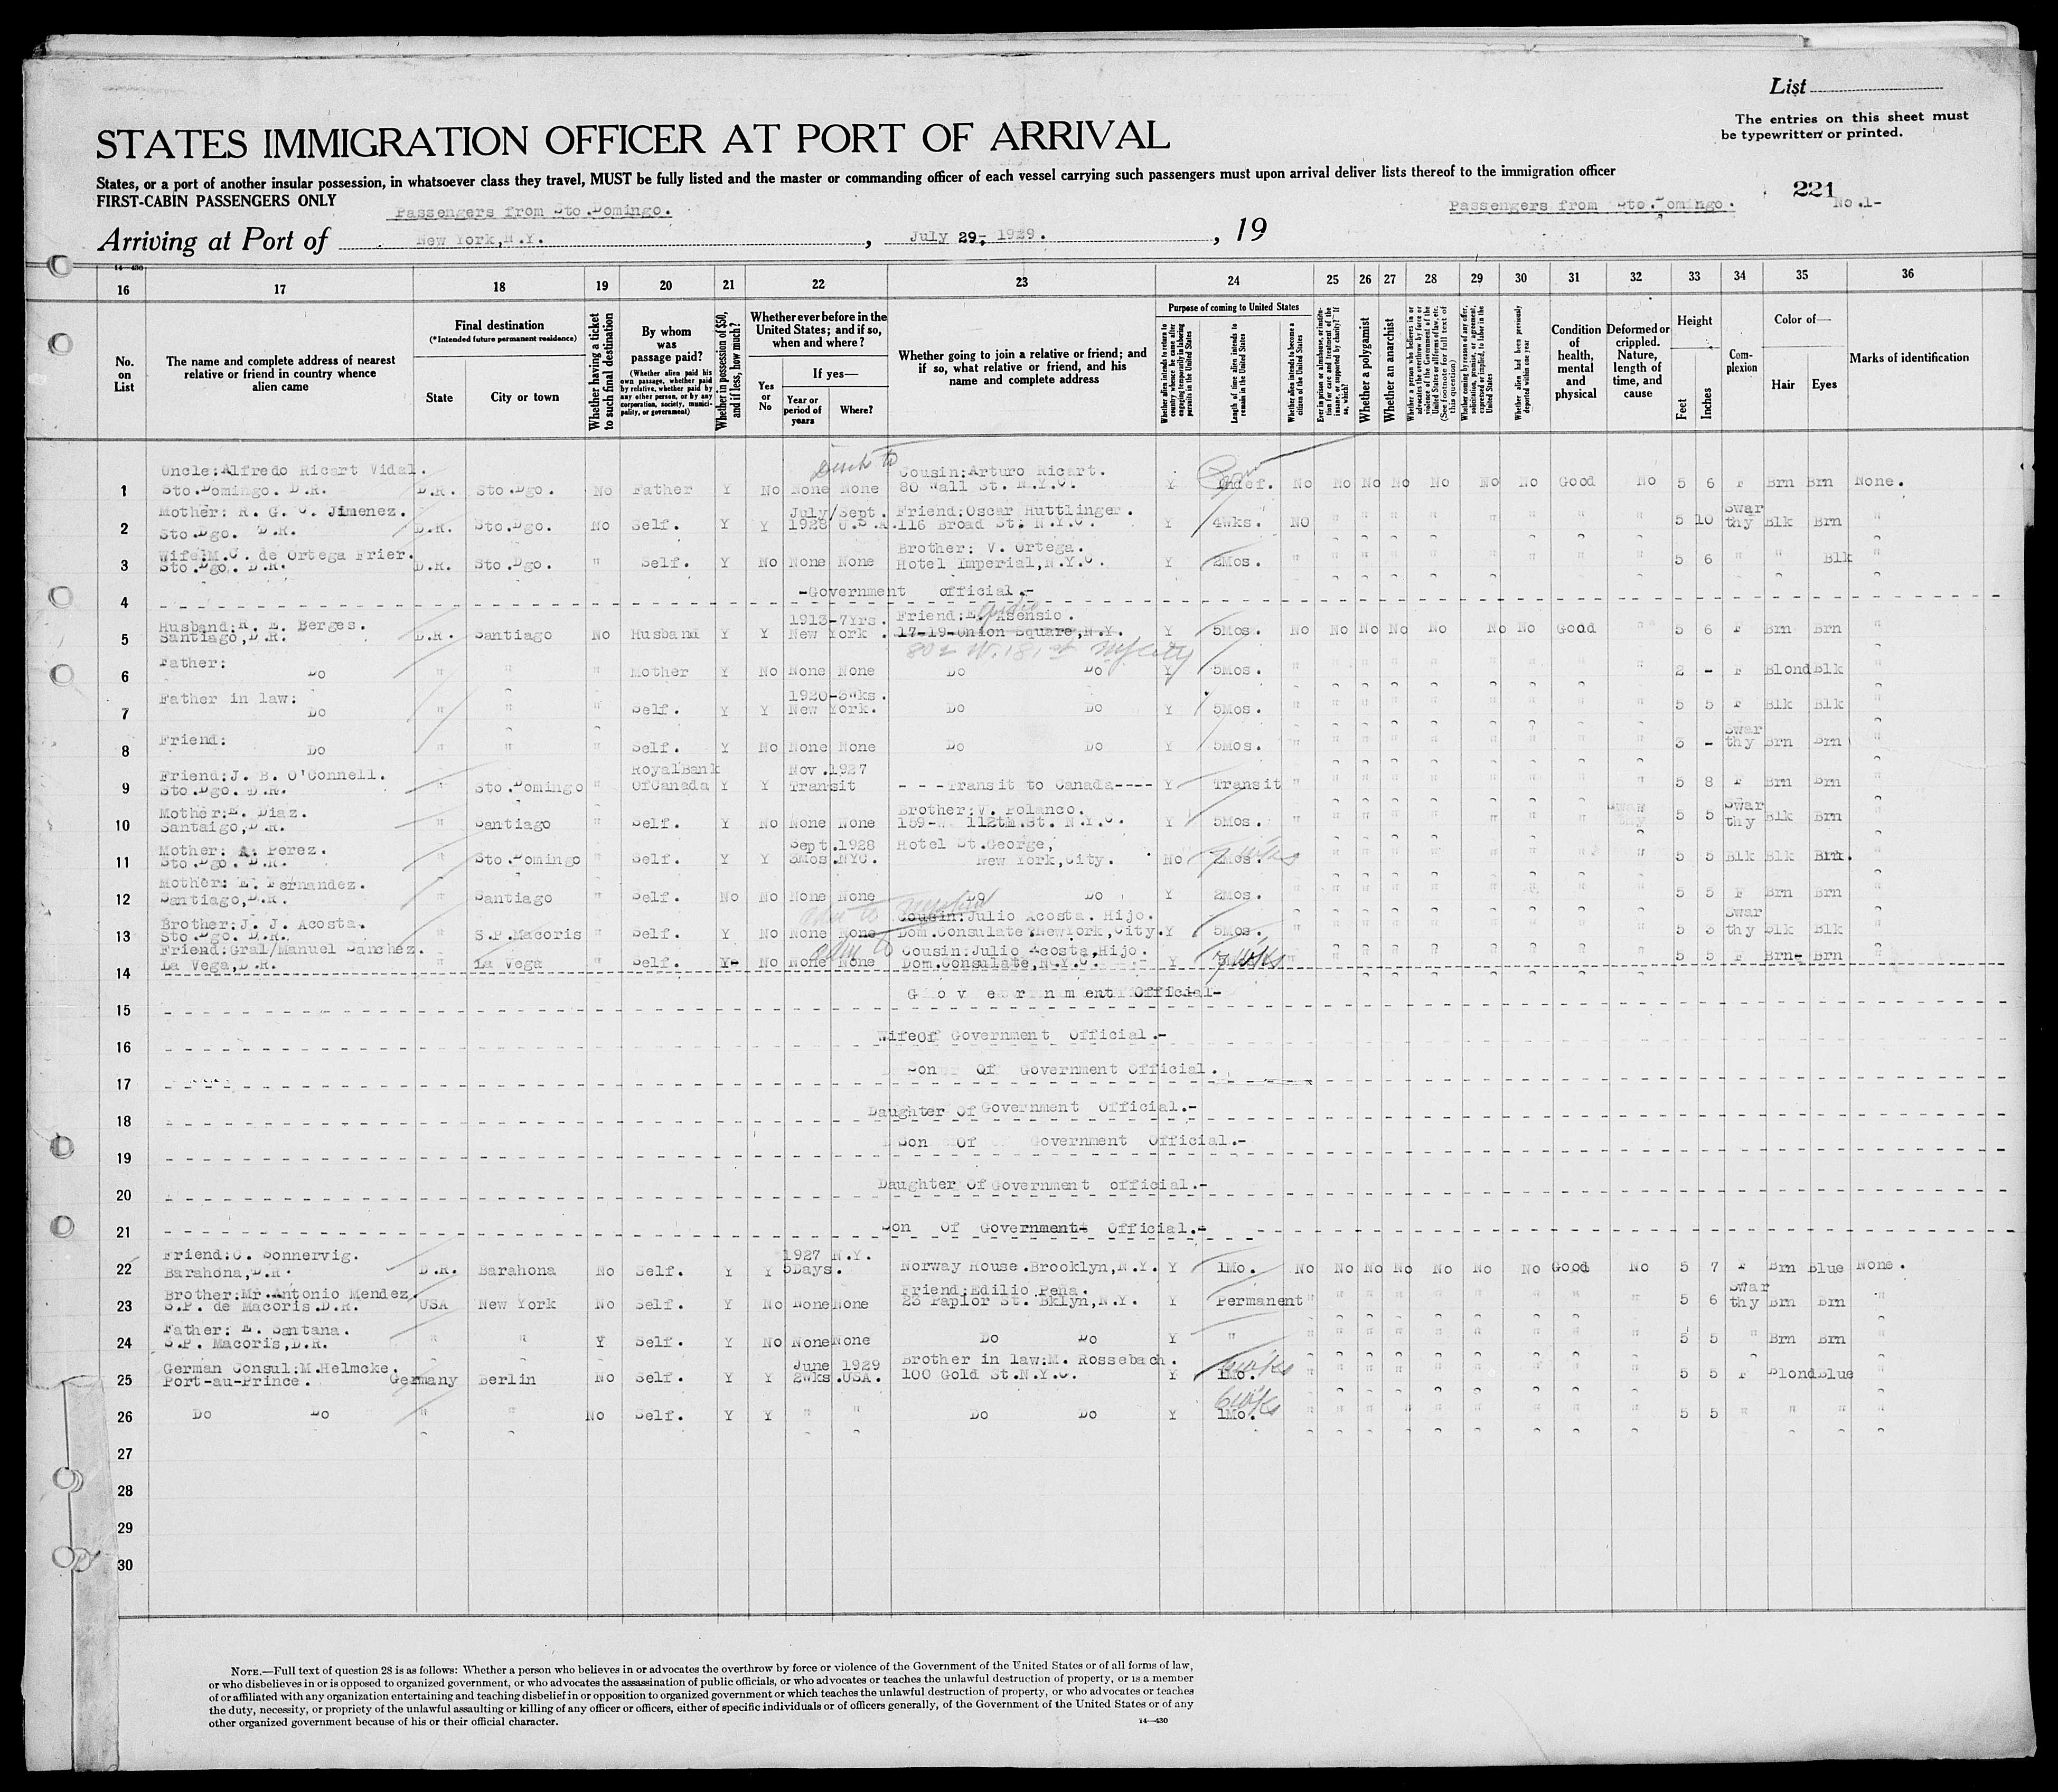 List
The entries on this sheet must
be typewritten or printed.
STATES IMMIGRATION OFFICER AT PORT OF ARRIVAL
States, or a port of another insular possession, in whatsoever class they travel, MUST be fully listed and the master or commanding officer of each vessel carrying such passengers must upon arrival deliver lists thereof to the immigration officer
FIRST-CABIN PASSENGERS ONLY
Passengers from Sto.Domingo.
Passengers from Sto.Domingo.
221
No.1-
Arriving at Port of New York,N.Y. , July 29, 1929. , 19
14—430
16 17 18 19 20 21 22 23 24 25 26 27 28 29 30 31 32 33 34 35 36
No. on List
The name and complete address of nearest relative or friend in country whence alien came
Final destination
(*Intended future permanent residence)
State
City or town
Whether having a ticket to such final destination
By whom was passage paid?
(Whether alien paid his own passage, whether paid by relative, whether paid by any other person, or by any corporation, society, municipality, or government)
Whether in possession of $50, and if less, how much?
Whether ever before in the United States; and if so, when and where?
Yes or No
If yes—
Year or period of years
Where?
Whether going to join a relative or friend; and if so, what relative or friend, and his name and complete address
Purpose of coming to United States
Whether alien intends to return to country whence he came after engaging temporarily in laboring permits in the United States
Length of time alien intends to remain in the United States
Whether alien intends to become a citizen of the United States
Whether a polygamist
Whether an anarchist
Whether a person who believes in or advocates the overthrow by force or violence of the Government of the United States or all forms of law, etc. (See footnote for full text of this question)
Whether coming by reason of any offer, solicitation, promise, or agreement, expressed or implied, to labor in the United States
Whether alien had been previously deported within one year
Condition of health, mental and physical
Deformed or crippled. Nature, length of time, and cause
Height
Feet
Inches
Complexion
Color of—
Hair
Eyes
Marks of identification
Uncle:Alfredo Ricart Vidal. Cousin:Arturo Ricart.
1 Sto.Domingo. D.R. D.R. Sto.Dgo. No Father Y No None None 80 Wall St. N.Y.C. Y Indef. No No No No No No No Good No 5 6 F Brn Brn None.
Mother: R. G. C. Jimenez. July/Sept. Friend:Oscar Huttlinger. Swar
2 Sto.Dgo. D.R. D.R. Sto.Dgo. No Self. Y Y 1928 U.S.A. 116 Broad St: N.Y.C. Y 4wks. NO " " " " " " " " 5 10 thy Blk Brn "
Wife:M.C. de Ortega Frier. Brother: V. Ortega.
3 Sto.Dgo. D.R. D.R. Sto.Dgo. " Self. Y No None None Hotel Imperial,N.Y.C. Y 2Mos. " " " " " " " " " 5 6 " " Blk "
4 -Government official.-
Husband:R. E. Berges. 1913-7Yrs. Friend:E. Asensio.
5 Santiago,D.R. D.R. Santiago No Husband Y Y New York. 17-19-Union Square,N.Y. Y 5Mos. No No No No No No No Good " 5 6 F Brn Brn "
802 W. 181 st NyCity
Father:
6 Do " " " Mother Y No None None Do Do Y 5Mos. " " " " " " " " " 2 - F Blond Blk "
Father in law: 1920-3wks.
7 Do " " " Self. Y Y New York. Do Do Y 5Mos. " " " " " " " " " 5 5 F Blk Blk "
Friend: Swar
8 Do " " " Self. Y No None None Do Do Y 5Mos. " " " " " " " " " 3 - thy Brn Brn "
Friend:J. B. O'Connell. RoyalBank Nov.1927
9 Sto.Dgo. D.R. " Sto.Domingo " OfCanada Y Y Transit - - -Transit to Canada---- Y Transit " " " " " " " " " 5 8 F Brn Brn "
Mother:E. Diaz. Brother:V. Polanco. Swar
10 Santaigo,D.R. " Santiago " Self. Y No None None 159-W. 112th.St. N.Y.C. Y 5Mos. " " " " " " " " " 5 5 thy Blk Brn "
Mother: A. Perez. Sept.1928 Hotel St.George,
11 Sto.Dgo. D.R. " Sto.Domingo " Self. Y Y 3Mos.NYC. New York,City. No 2Mos. " " " " " " " " " 5 5 Blk Blk Brn. "
Mother: E. Fernandez.
12 Santiago,D.R. " Santiago " Self. No No None None Do Do Y 2Mos. " " " " " " " " " 5 5 F Brn Brn "
Brother:J. J. Acosta. Cousin:Julio Acosta. Hijo. Swar
13 Sto.Dgo. D.R. " S.P.Macoris " Self. Y No None None Dom.Consulate.NewYork,City. Y 5Mos. " " " " " " " " " 5 3 thy Blk Blk "
Friend:Gral/Manuel Sanchez. Cousin:Julio Acosta,Hijo.
14 La Vega,D.R. " La Vega " Self. Y- No None None Dom.Consulate,N.Y.C. Y 7 wks " " " " " " " " " 5 5 F Brn- Brn "
15 G o v e r n m ent Official-
16 WifeOf Government Official.-
17 Son Of Government Official.
18 Daughter Of Government Official.-
19 Son Of Government Official.-
20 Daughter Of Government official.-
21 Son Of Government Official.-
Friend:C. Sonnervig. 1927 N.Y.
22 Barahona,D.R. D.R. Barahona No Self. Y Y 5Days. Norway House.Brooklyn,N.Y. Y 1Mo. No No No No No No No Good No 5 7 F Brn Blue None.
Brother:Mr.Antonio Mendez. Friend:Edilio Peña. Swar
23 S.P. de Macoris.D.R. USA New York No Self. Y No None None 23 Paplor St. Bklyn,N.Y. Y Permanent " " " " " " " " " 5 6 thy Brn Brn "
Father: E. Santana.
24 S.P. Macoris,D.R. " " Y Self. Y No None None Do Do Y " " " " " " " " " " 5 5 " Brn Brn "
German Consul:M.Helmcke. June 1929 Brother in law:M. Rossebach.
25 Port-au-Prince. Germany Berlin No Self. Y Y 2wks.USA. 100 Gold St.N.Y.C. Y 1Mo. 6wks " " " " " " " " " 5 5 F Blond Blue "
26 Do Do " " No Self. Y Y " " Do Do Y 1Mo. 6wks " " " " " " " " " 5 5 " " " "
27
28
29
30
NOTE.—Full text of question 28 is as follows: Whether a person who believes in or advocates the overthrow by force or violence of the Government of the United States or of all forms of law,
or who disbelieves in or is opposed to organized government, or who advocates the assassination of public officials, or who advocates or teaches the unlawful destruction of property, or is a member
of or affiliated with any organization entertaining and teaching disbelief in or opposition to organized government or which teaches the unlawful destruction of property, or who advocates or teaches
the duty, necessity, or propriety of the unlawful assaulting or killing of any officer or officers, either of specific individuals or of officers generally, of the Government of the United States or of any
other organized government because of his or their official character.
14—430